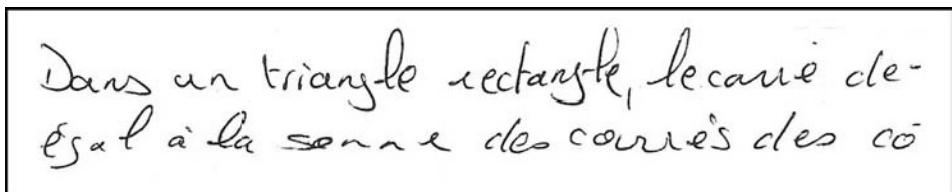 Dans un triangle rectangle, le carré de
égal à la somme des carrés des cô